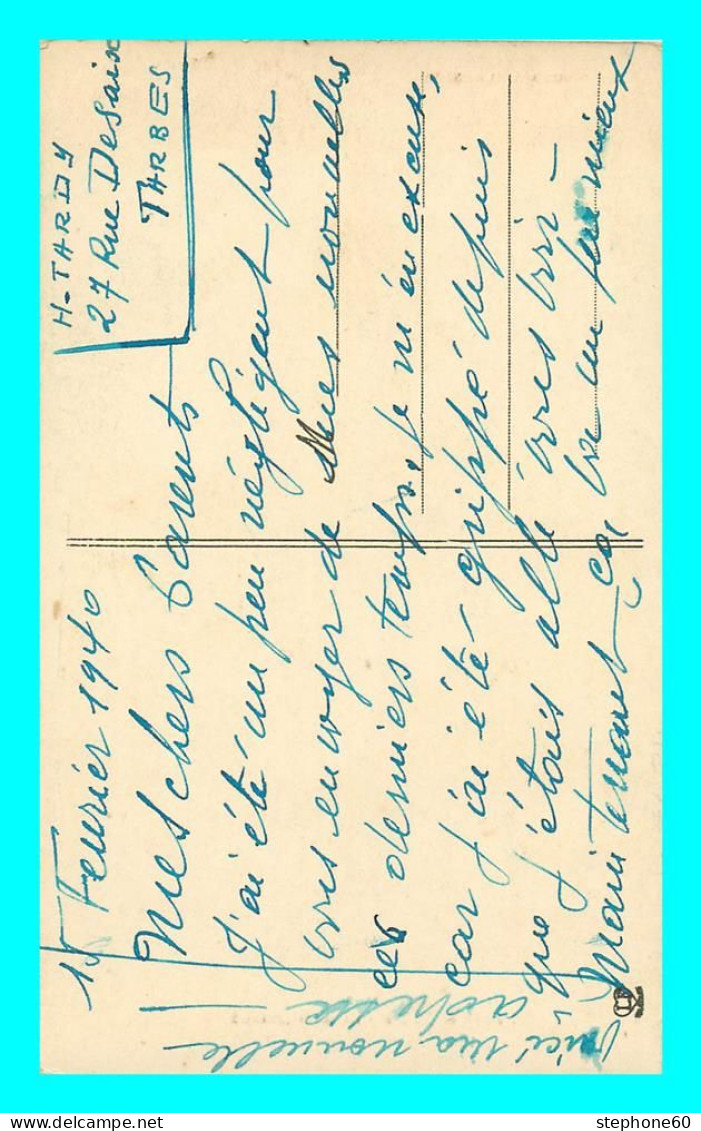 H-TARDY
27 Rue Desaix
TARBES
15 Fevrier 1940
Mes chers Parents
J'ai été un peu négligent pour
vous envoyer de mes nouvelles
ces derniers temps. Je m'en excuse,
car j'ai été grippé depuis
que j'étais allé vous voir -
Maintenant ça va un peu mieux
Voici ma nouvelle
adresse
stephone60